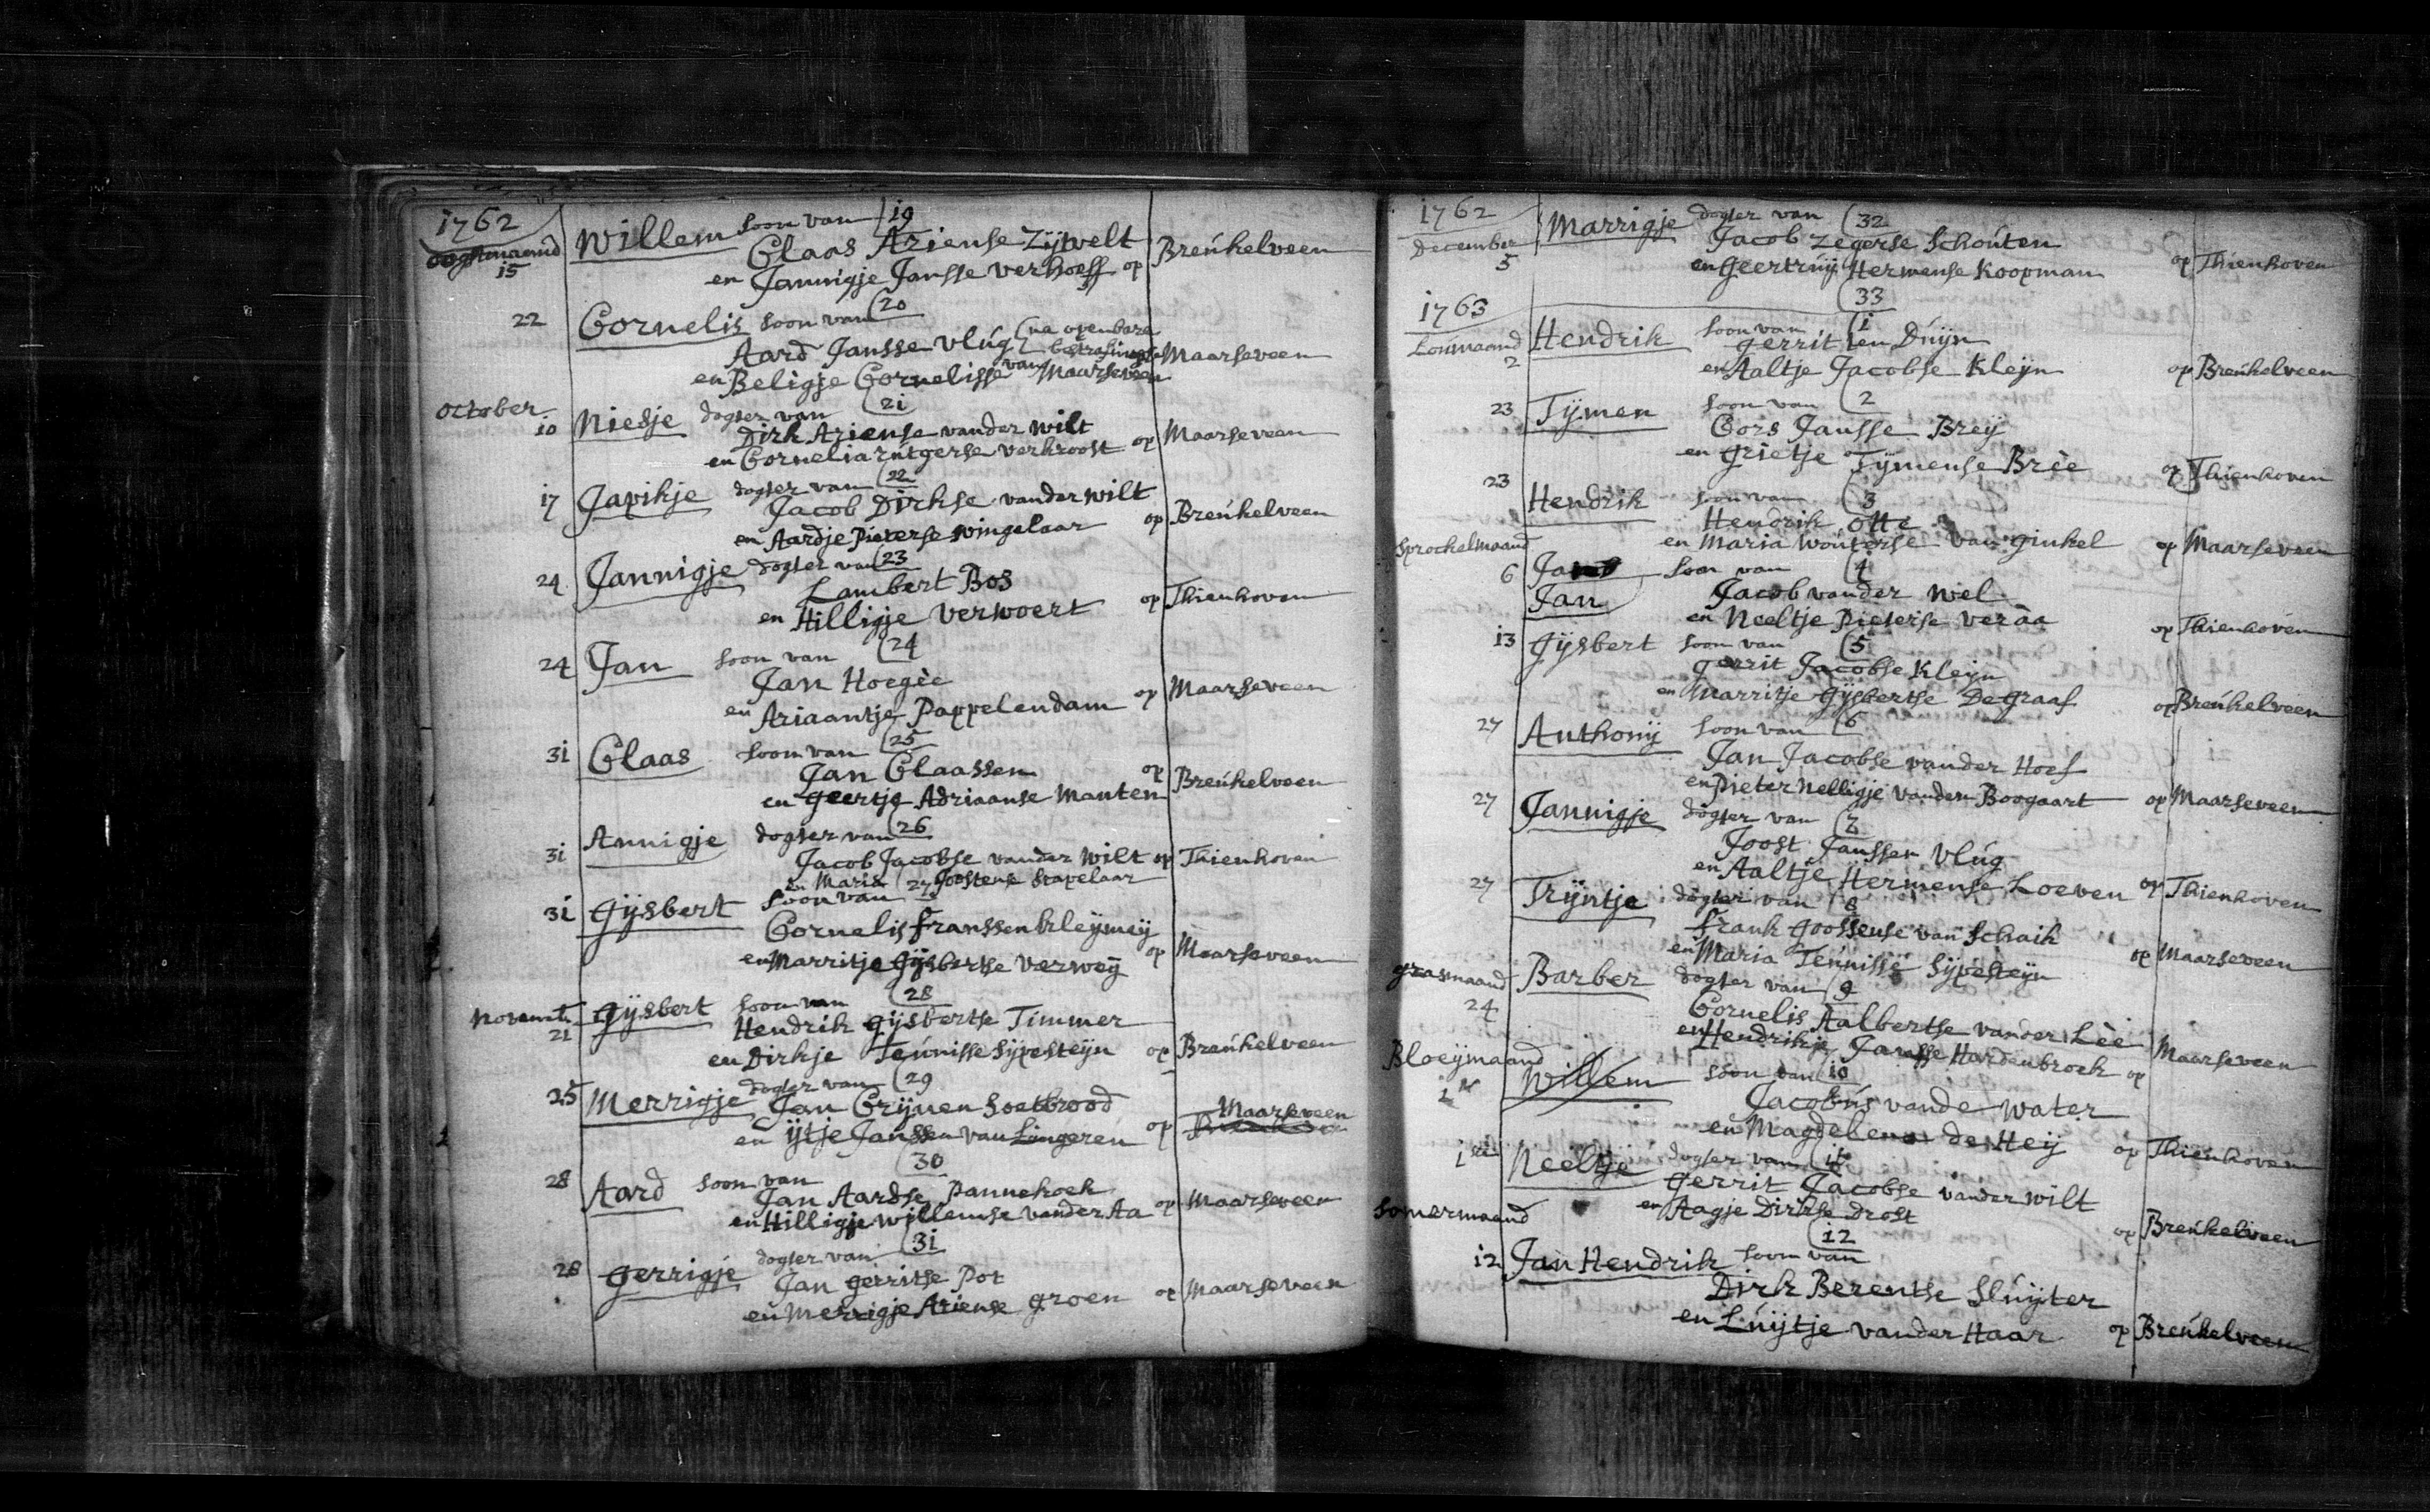 1762
oogstmaand
15 Willem soon van (19
Claas Ariense Zijtvelt
en Jannigje Jansse verhoeff op Breukelveen
22 Cornelis soon van (20
Aard Jansse Vlug (na openbare
bestraffinge Maarseveen
en Beligje Cornelisse van Maarseveen
october
10 Niesje dogter van (21
Dirk Ariense vander wilt
en Cornelia rutgerse verkroost op Maarseveen
17 Japikje dogter van (22
Jacob Dirkse vander wilt
en Aardje Pieterse wingelaar op Breukelveen
24 Jannigje dogter van (23
Lambert Bos
en Hilligje Verwoert op Thienhoven
24 Jan soon van (24
Jan Hoegèe
en Ariaantje Pappelendam op Maarseveen
31 Claas soon van (25
Jan Claassen op
en geertje Adriaanse Manten Breukelveen
31 Annigje dogter van (26
Jacob Jacobse vander wilt op Thienhoven
en Maria Joostense Stapelaar
31 gijsbert soon van (27
Cornelis franssen kleijmeij
en Marritje gijsbertse verweij op Maarseveen
novemb.
21 gijsbert soon van (28
Hendrik gijsbertse Timmer
en Dirkje Teunisse Sijpesteijn op Breukelveen
25 Merrigje dogter van (29
Jan Crijnen Soetbrood
en ijtje Janssen van Lingeren op Maarseveen
30
28 Aard soon van
Jan Aardse Pannekoek
en Hilligje willemse vander Aa op Maarseveen
28 gerrigje dogter van (31
Jan gerritse Pot
en Merrigje Ariense groen op Maarseveen
1762
December
5 Marrigje dogter van (32
Jacob Zegerse Schouten
en geertruij Hermense Koopman op Thienhoven
(33
1763
Loumaand
2 Hendrik soon van (1
gerrit ten Duijn
en Aaltje Jacobse Kleijn op Breukelveen
23 Tijmen soon van (2
Cors Jansse Breij
en grietje Tijmense Brèe op Thienhoven
23 Hendrik soon van (3
Hendrik otte
en Maria Wouterse van ginkel op Maarseveen
Sprockelmaand
6 Jan soon van (4
Jan Jacob vander wel
en Neeltje Pieterse veràa op Thienhoven
13 gijsbert soon van (5
gerrit Jacobse Kleijn
en Marritje gijsbertse De graaf op Breukelveen
27 Anthonij soon van (6
Jan Jacobse vander Hoef
en Pieternelligje vanden Boogaart op Maarseveen
27 Jannigje dogter van (7
Joost Janssen Vlug
en Aaltje Hermense Loeven op Thienhoven
27 Trijntje dogter van (8
Frank Goossense van Schaik
en Maria Teunisse Sijpesteijn op Maarseveen
grasmaand
24 Barber dogter van (9
Cornelis Aalbertse vander Lèe
en Hendrikje Jansse Hardenbroek op Maarseveen
Bloeijmaand
1ste Willem soon van (10
Jacobus vande water
en Magdelena de Heij op Thienhoven
1ste Neeltje dogter van (11
gerrit Jacobse vander wilt
en Aagje Dirkse Drost op Breukelveen
Somermaand
(12
12 Jan Hendrik soon van
Dirk Berentse Sluijter
en Luijtje vander Haar op Breukelveen